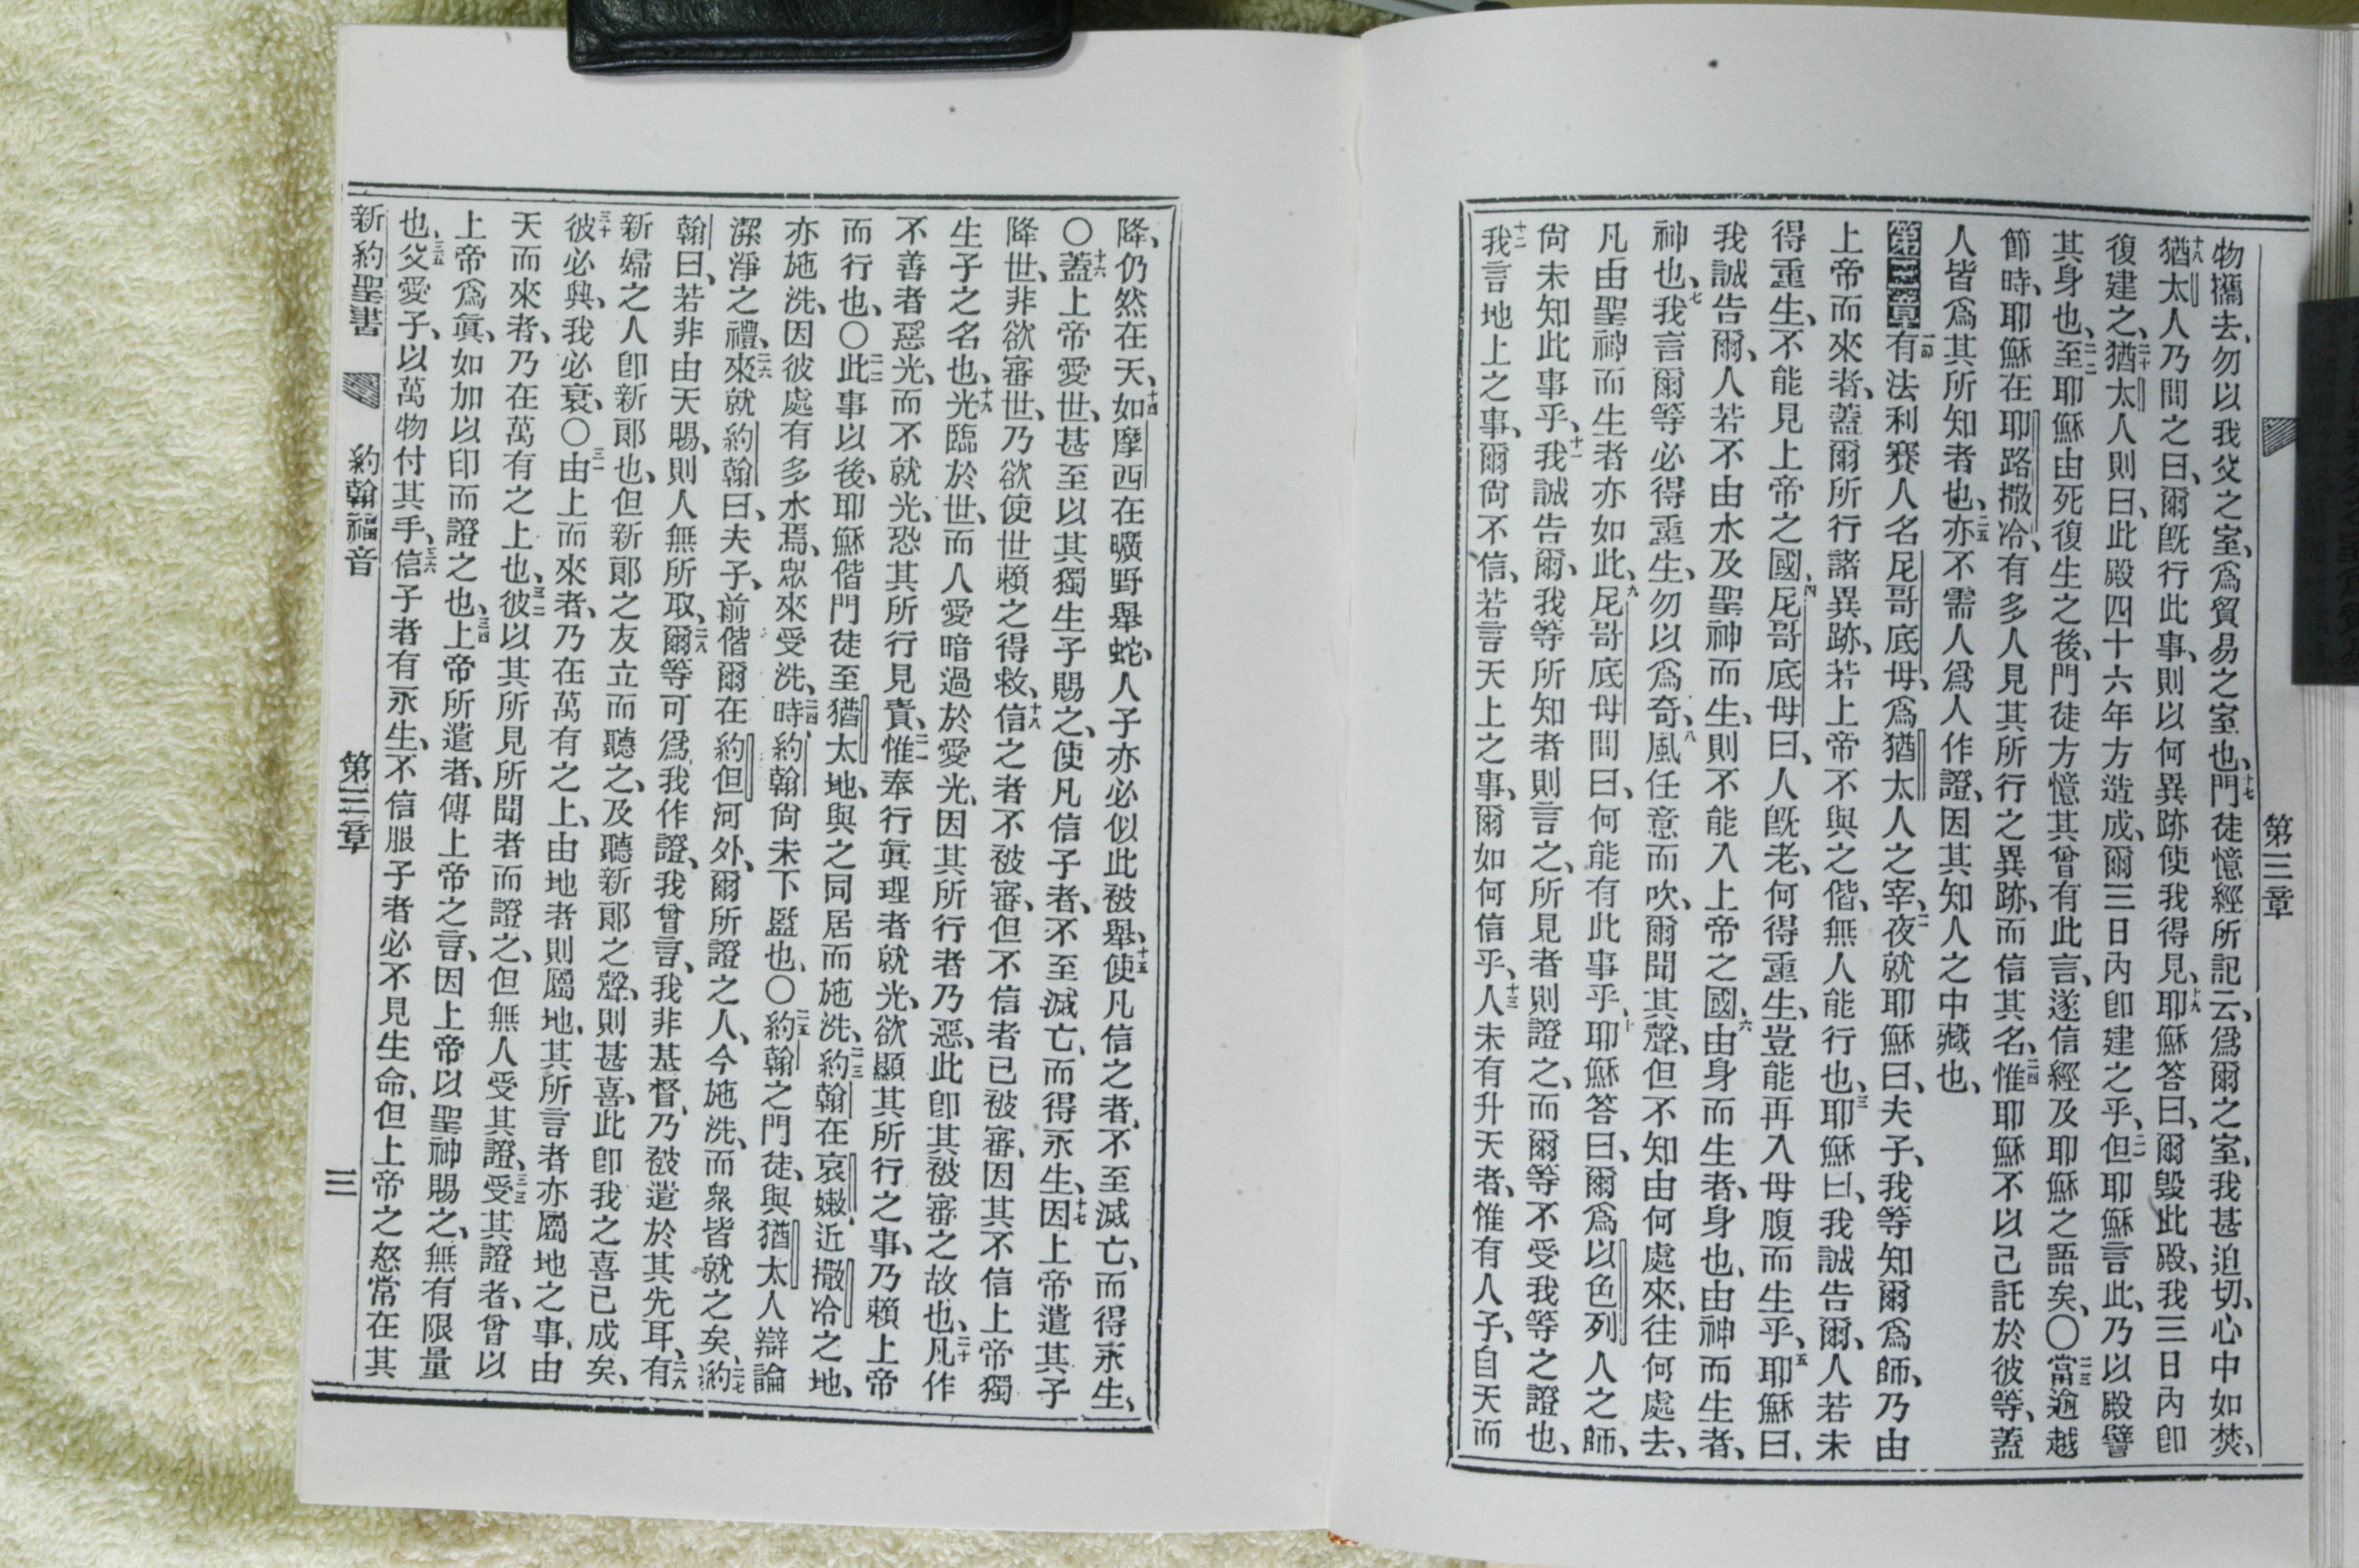 第三章
物攜去、勿以我父之室、爲貿易之室也、十七門徒憶經所記云、爲爾之室、我甚迫切、心中如焚、
十八猶太人乃問之曰、爾旣行此事、則以何異跡使我得見、十九耶穌答曰、爾毀此殿、我三日內卽
復建之、二十猶太人則曰、此殿四十六年方造成、爾三日內卽建之乎、二一但耶穌言此、乃以殿譬
其身也、二二至耶穌由死復生之後、門徒方憶其曾有此言、遂信經及耶穌之語矣、〇二三當逾越
節時、耶穌在耶路撒冷、有多人見其所行之異跡、而信其名、二四惟耶穌不以己託於彼等、蓋
人皆爲其所知者也、二五亦不需人爲人作證、因其知人之中藏也、
第三章一節有法利賽人名尼哥底母、爲猶太人之宰、二夜就耶穌曰、夫子、我等知爾爲師、乃由
上帝而來者、蓋爾所行諸異跡、若上帝不與之偕、無人能行也、三耶穌曰、我誠告爾、人若未
得重生、不能見上帝之國、四尼哥底母曰、人旣老、何得重生、豈能再入母腹而生乎、五耶穌曰、
我誠告爾、人若不由水及聖神而生、則不能入上帝之國、六由身而生者、身也、由神而生者、
神也、七我言爾等必得重生、勿以爲奇、八風任意而吹、爾聞其聲、但不知由何處來、往何處去、
凡由聖神而生者亦如此、九尼哥底母問曰、何能有此事乎、十耶穌答曰、爾爲以色列人之師、
尙未知此事乎、十一我誠告爾、我等所知者則言之、所見者則證之、而爾等不受我等之證也、
十二我言地上之事、爾尙不信、若言天上之事、爾如何信乎、十三人未有升天者、惟有人子、自天而
降、仍然在天、十四如摩西在曠野舉蛇、人子亦必似此被舉、十五使凡信之者、不至滅亡、而得永生、
〇十六蓋上帝愛世、甚至以其獨生子賜之、使凡信子者、不至滅亡、而得永生、十七因上帝遣其子
降世、非欲審世、乃欲使世賴之得救、十八信之者不被審、但不信者已被審、因其不信上帝獨
生子之名也、十九光臨於世、而人愛暗過於愛光、因其所行者乃惡、此卽其被審之故也、二十凡作
不善者惡光、而不就光、恐其所行見責、二一惟奉行眞理者就光、欲顯其所行之事、乃賴上帝
而行也、〇二二此事以後、耶穌偕門徒至猶太地、與之同居而施洗、二三約翰在哀嫩、近撒冷之地、
亦施洗、因彼處有多水焉、眾來受洗、二四時約翰尙未下監也、〇二五約翰之門徒、與猶太人辯論
潔淨之禮、二六來就約翰曰、夫子、前偕爾在約但河外、爾所證之人、今施洗、而衆皆就之矣、二七約
翰曰、若非由天賜、則人無所取、二八爾等可爲我作證、我曾言、我非基督、乃被遣於其先耳、二九有
新婦之人卽新郞也、但新郞之友立而聽之、及聽新郞之聲、則甚喜、此卽我之喜已成矣、
三十彼必興、我必衰、〇三一由上而來者、乃在萬有之上、由地者則屬地、其所言者亦屬地之事、由
天而來者、乃在萬有之上也、三二彼以其所見所聞者而證之、但無人受其證、三三受其證者、曾以
上帝爲眞、如加以印而證之也、三四上帝所遣者、傳上帝之言、因上帝以聖神賜之、無有限量
也、三五父愛子、以萬物付其手、三六信子者有永生、不信服子者必不見生命、但上帝之怒常在其
新約聖書 約翰福音 第三章 三